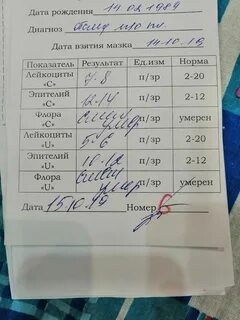 Дата рождения 14.02.1989
Диагноз
Дата взятия мазка 14.10.19
Показатель Результат Ед.изм Норма
Лейкоциты «С» 7-8 п/зр 2-20
Эпителий «С» 12-14 п/зр 2-12
Флора «С» смеш умер п/зр умерен
Лейкоциты «U» 5-6 п/зр 2-20
Эпителий «U» 10-12 п/зр 2-12
Флора «U» смеш умер п/зр умерен
Дата 15.10.19 Номер 6